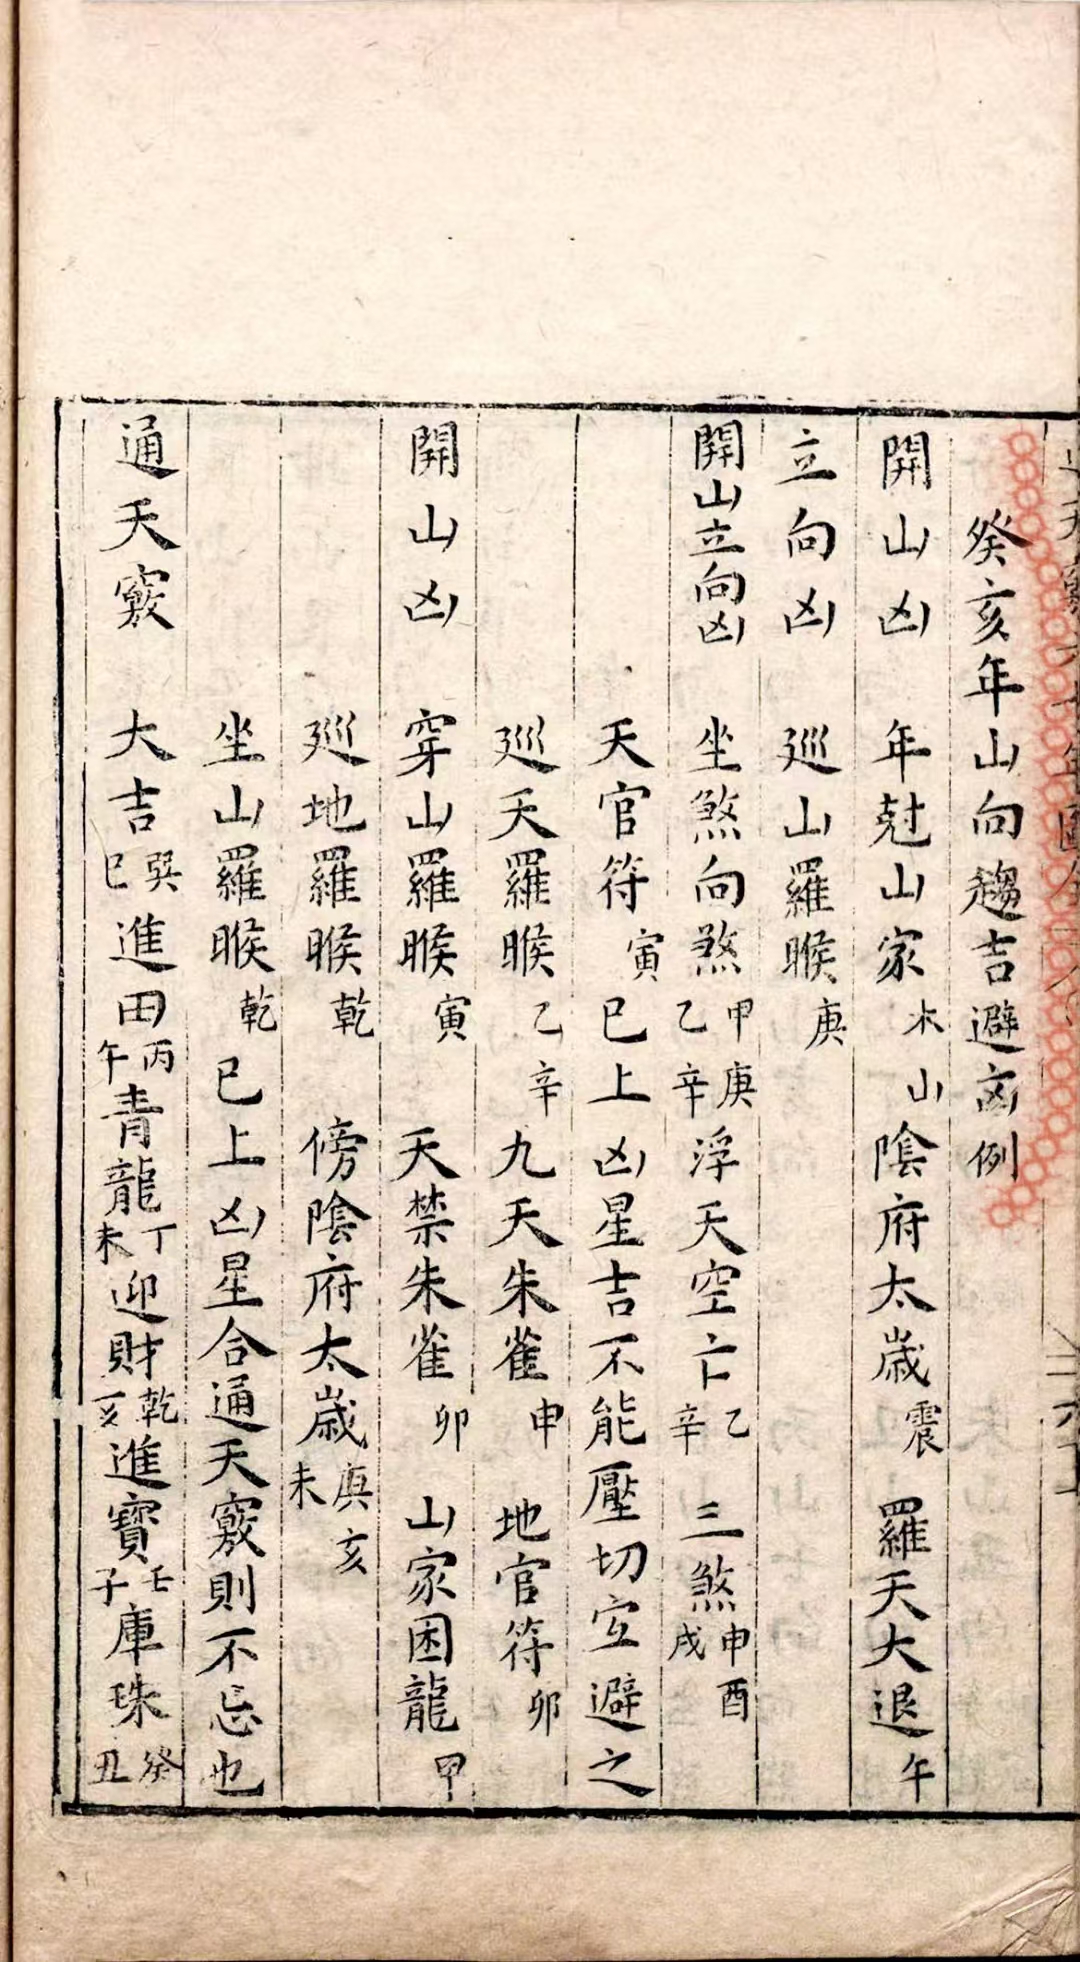 癸亥年山向趨吉避凶例
開山凶 年尅山家木山 陰府太歳震 羅天大退午
立向凶 巡山羅睺庚
開山立向凶 坐煞向煞甲庚乙辛浮天空亡乙辛 三煞申酉戌
天官符寅 巳上凶星吉不能壓切宜避之
巡天羅睺乙辛 九天朱雀申 地官符卯
開山凶 穿山羅睺寅 天禁朱雀卯 山家困龍甲
巡地羅睺乾 傍陰府太歳庚亥未
坐山羅睺乾 巳上凶星合通天竅則不忌也
通天竅 大吉巽巳進田丙午青龍丁未迎財乾亥進寶壬子庫珠癸丑